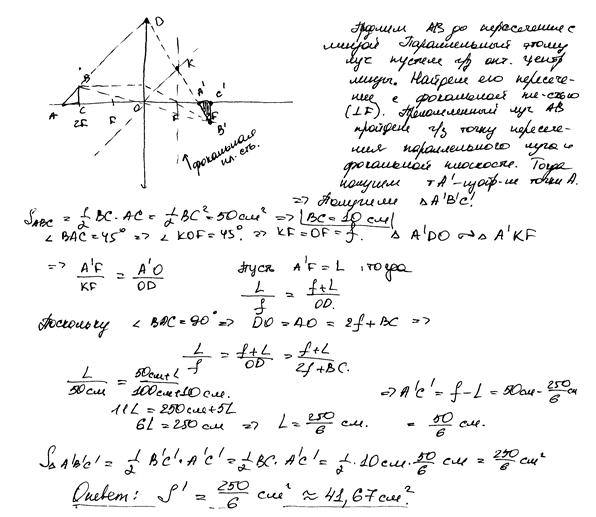 D
K
B
A' C'
A C O F F
2F B'
фокальная
пл-сть.
Продлим AB до пересечения с
линзой. Параллельный этому
луч пустим ч/з опт. центр
линзы. Найдем его пересече-
ние с фокальной пл-стью
(⊥F). Преломленный луч AB
пройдет ч/з точку пересече-
ния параллельного луча и
фокальной плоскости. Тогда
получим т A' – изобр-ие точки A.
=> Получим △A'B'C'.
S_ABC = 1/2 BC · AC = 1/2 BC² = 50 см² => |BC = 10 см|
∠BAC = 45° => ∠KOF = 45° => KF = OF = f. △A'DO ∾ △A'KF
=> A'F/KF = A'O/OD Пусть A'F = L, тогда
L/f = f+L/OD.
Поскольку ∠BAC = 90° => DO = AO = 2f + BC =>
L/f = f+L/OD = f+L/2f+BC.
L/50см = 50см+L/100см+10см. => A'C' = f – L = 50см – 250/6 см
11L = 250см + 5L
6L = 250 см => L = 250/6 см. = 50/6 см.
S△A'B'C' = 1/2 B'C' · A'C' = 1/2 BC · A'C' = 1/2 · 10 см · 50/6 см = 250/6 см²
Ответ: S' = 250/6 см² ≈ 41,67 см².